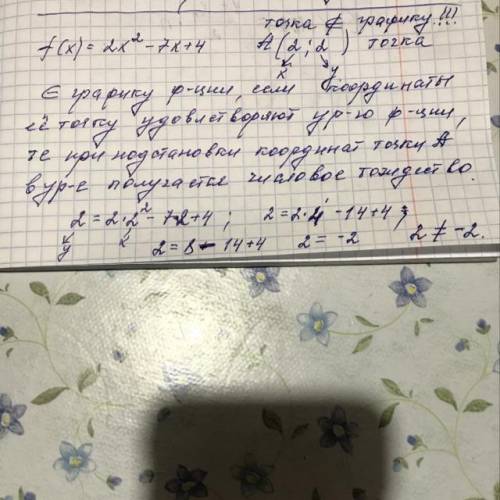 точка ∉ графику!!!
f(x) = 2x² - 7x + 4   A(2; 2) точка
x y
∈ графику ф-ции, если координаты
её точку удовлетворяют ур-ю ф-ции,
те при подстановки координат точки A
в ур-е получается числовое тождество.
2 = 2·2² - 7·2 + 4 ;   2 = 2·4 - 14 + 4 ;
y x 2 = 8 - 14 + 4   2 = -2   2 ≠ -2.